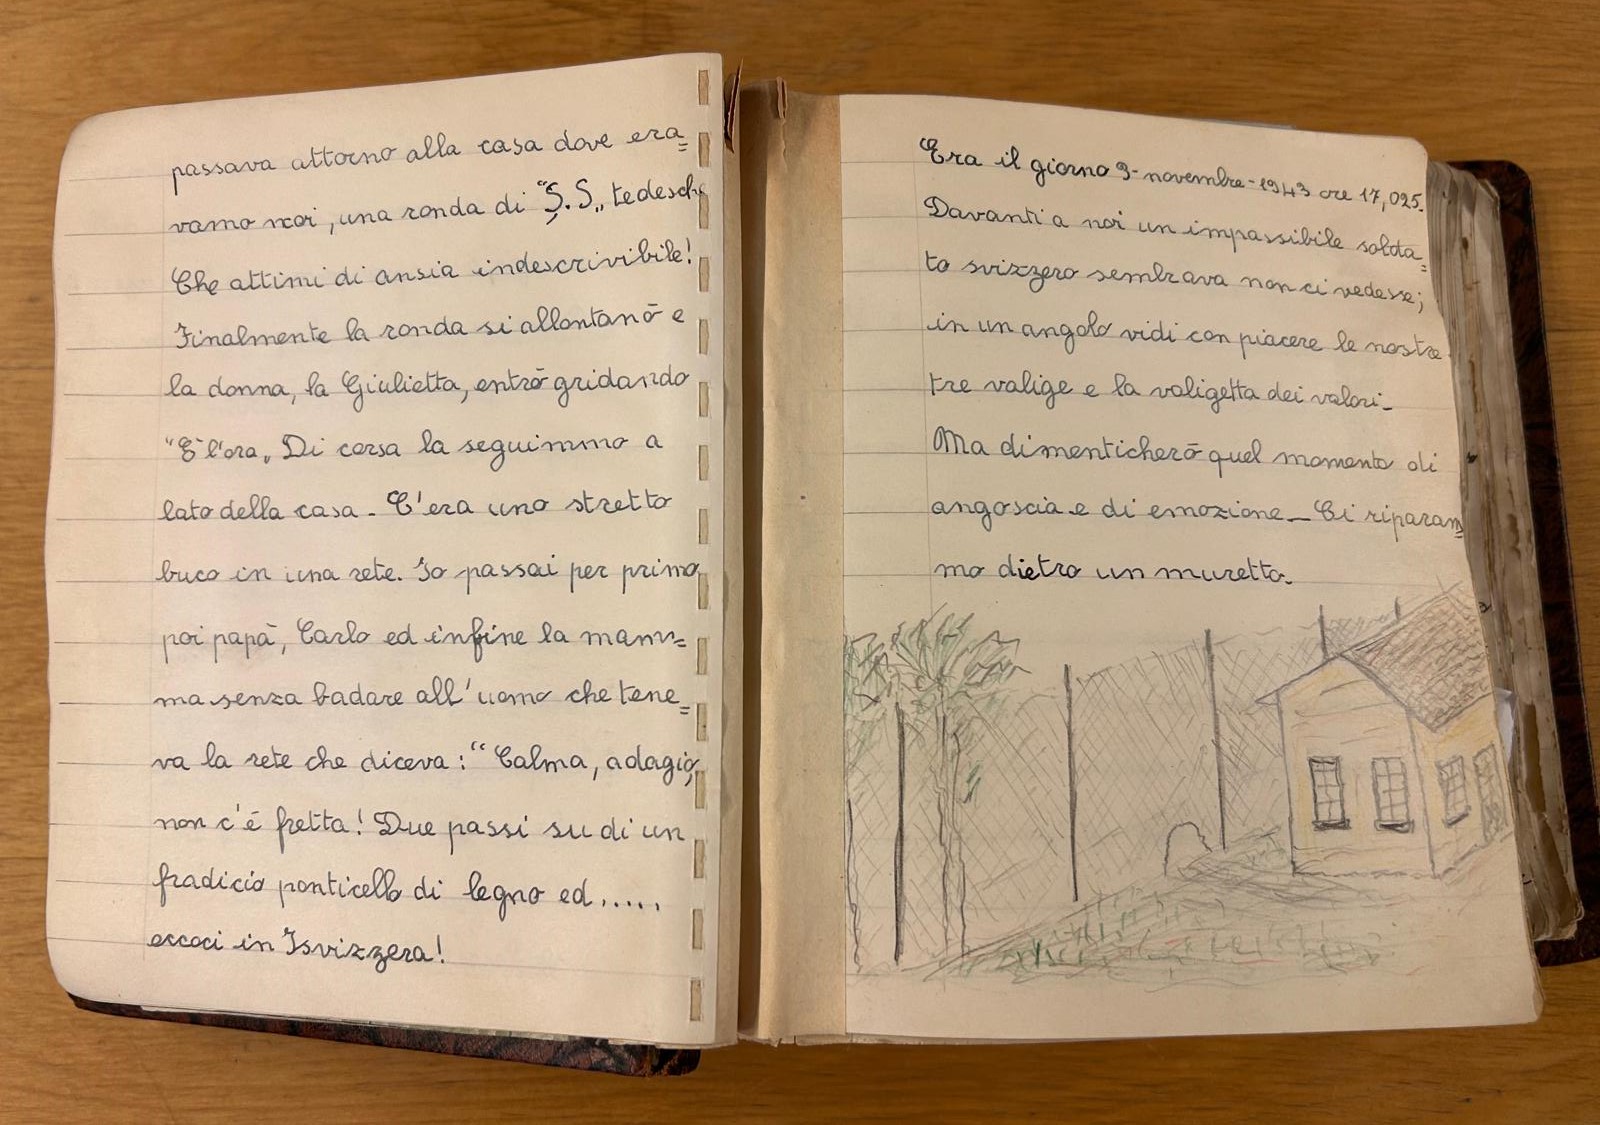 passava attorno alla casa dove era=
vamo noi, una ronda di "S.S„ tedesch
Che attimi di ansia indescrivibile!
Finalmente la ronda si allontanò e
la donna, la Giulietta, entrò gridando
"È l'ora„ Di corsa la seguimmo a
lato della casa - C'era uno stretto
buco in una rete. Io passai per primo,
poi papà, Carlo ed infine la mam=
ma senza badare all'uomo che tene=
va la rete che diceva: "Calma, adagio,
non c'è fretta! Due passi su di un
fradicio ponticello di legno ed.....
eccoci in Isvizzera!
Era il giorno 9-novembre-1943 ore 17,025.
Davanti a noi un impassibile solda=
to svizzero sembrava non ci vedesse;
in un angolo vidi con piacere le nostre
tre valige e la valigetta dei valori-
Ma dimenticherò quel momento di
angoscia e di emozione_ Ci riparam=
mo dietro un muretto.